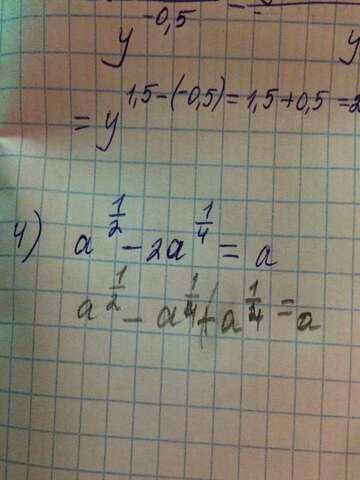 y^{-0,5}
y
= y^{1,5-(-0,5)=1,5+0,5=2}
4) a^{\frac{1}{2}} - 2a^{\frac{1}{4}} = a
a^{\frac{1}{2}} - a^{\frac{1}{4}} + a^{\frac{1}{4}} = a